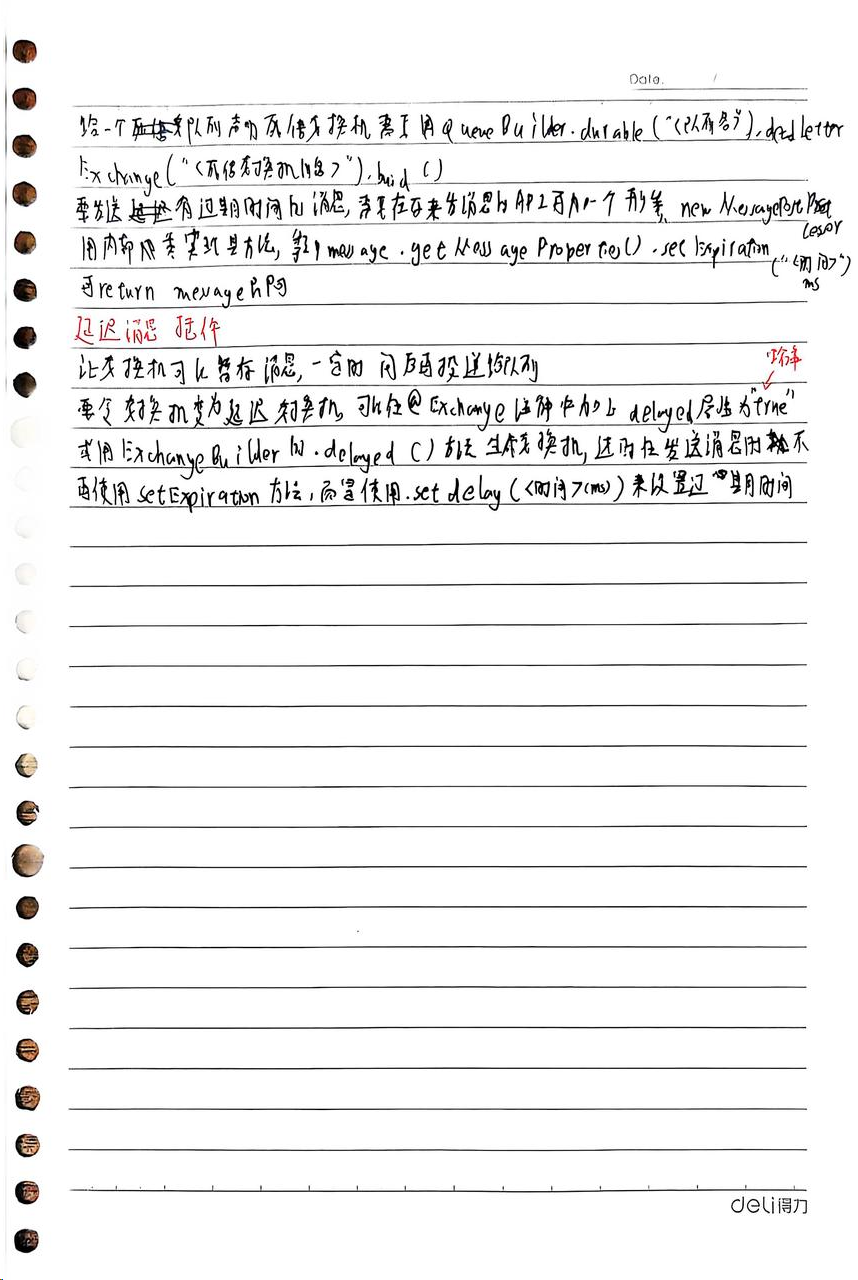 Date. /
给一个队列声明死信交换机需要用QueueBuilder.durable("<队列名>").deadLetter
Exchange("<死信交换机名>").build()
要发送有过期时间的消息,需要在原来发消息的API再加一个形参, new MessagePostProcessor
用内部类实现其方法, message.getMessageProperties().setExpiration
("<时间>")
ms
再return message即可
延迟消息 插件
让交换机可以暂存消息,一定时间后再投递给队列
字符串
要令交换机变为延迟交换机,可以在@Exchange注解中加上delayed属性为"true"
或用ExchangeBuilder的.delayed()方法生成交换机,这时在发送消息时不
再使用setExpiration方法,而是使用.setdelay(<时间>(ms))来设置过期时间
deli得力